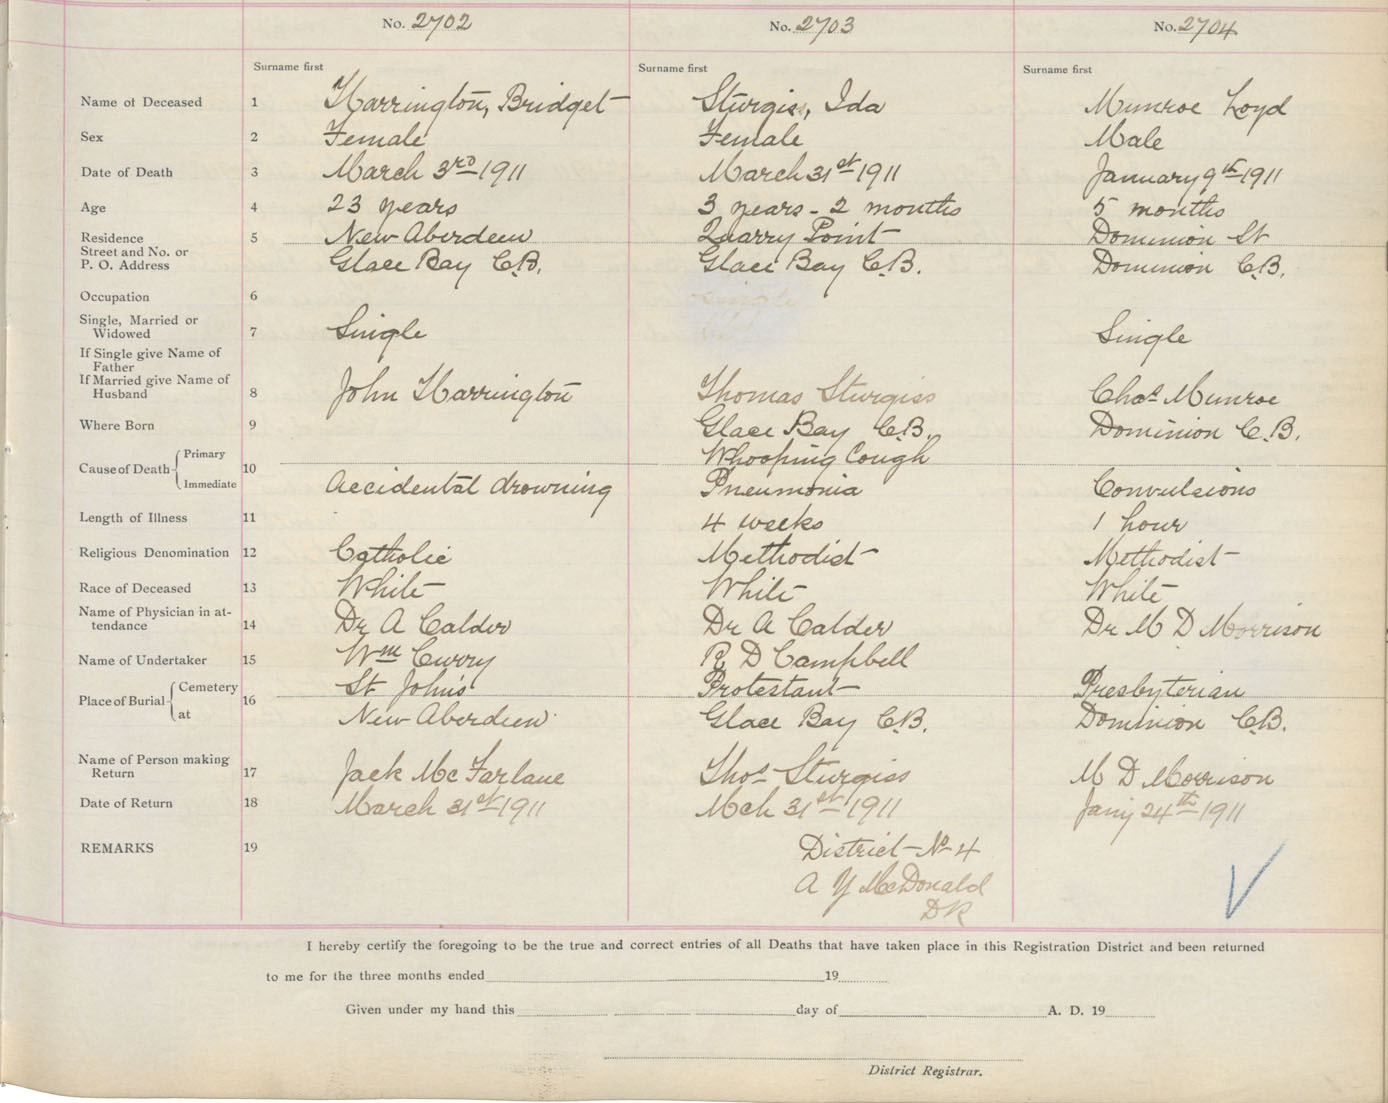 No. 2702 No. 2703 No. 2704
Surname first Surname first Surname first
Name of Deceased 1 Harrington, Bridget Sturgiss, Ida Munroe Loyd
Sex 2 Female Female Male
Date of Death 3 March 3rd 1911 March 31st 1911 January 9th 1911
Age 4 23 years 3 years - 2 months 5 months
Residence 5 New Aberdeen Quarry Point Dominion St
Street and No. or
P. O. Address Glace Bay C.B. Glace Bay C.B. Dominion C.B.
Occupation 6 Single
Single, Married or
Widowed 7 Single Single
If Single give Name of
Father
If Married give Name of
Husband 8 John Harrington Thomas Sturgiss Chas. Munroe
Where Born 9 Glace Bay C.B. Dominion C.B.
Primary Whooping Cough
Cause of Death 10
Immediate Accidental drowning Pneumonia Convulsions
Length of Illness 11 4 weeks 1 hour
Religious Denomination 12 Catholic Methodist Methodist
Race of Deceased 13 White White White
Name of Physician in at-
tendance 14 Dr A Calder Dr A Calder Dr M D Morrison
Name of Undertaker 15 Wm Curry R D Campbell
Cemetery St John's Protestant Presbyterian
Place of Burial 16
at New Aberdeen Glace Bay C.B. Dominion C.B.
Name of Person making
Return 17 Jack McFarlane Thos Sturgiss M D Morrison
Date of Return 18 March 31st 1911 Mch 31st 1911 Jany 24th 1911
REMARKS 19 District No 4
A Y McDonald
DR
I hereby certify the foregoing to be the true and correct entries of all Deaths that have taken place in this Registration District and been returned
to me for the three months ended 19
Given under my hand this day of A. D. 19
District Registrar.